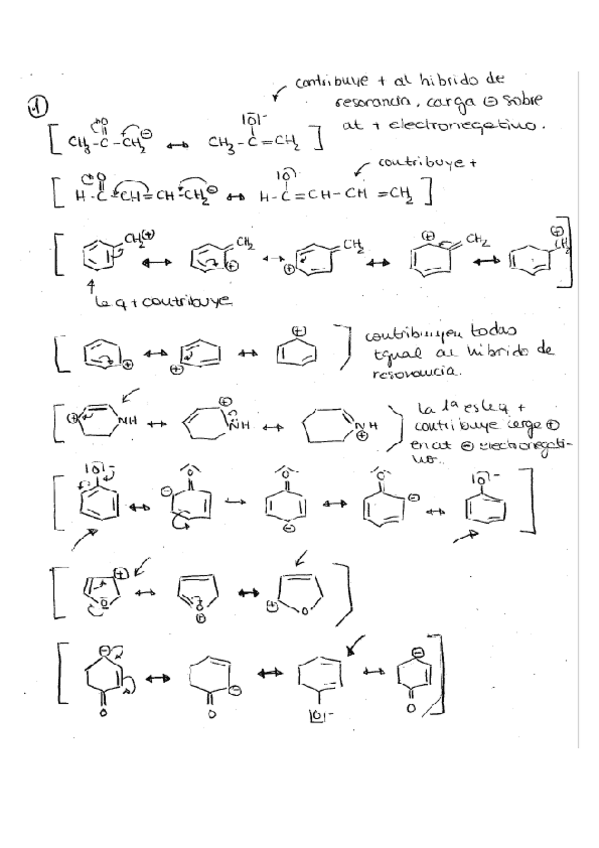 contribuye + al hibrido de
resonancia, carga ⊖ sobre
at + electronegativo.
1
[ CH3-C-CH2 ⊖ ↔ CH3-C=CH2 ]
O
|O|-
contribuye +
[ H-C-CH=CH-CH2 ⊖ ↔ H-C=CH-CH=CH2 ]
O
|O|-
CH2(+) CH2 ⊕ CH2 ⊕ CH2 ⊕ CH2 ⊕
la q + contribuye
⊕ ⊕ ⊕
contribuyen todas
igual al hibrido de
resonancia.
⊕ NH ⊕ NH NH ⊕
la 1ª es la q +
contribuye carga ⊕
en at ⊖ electronegati-
vo.
|O|- O ⊖ O ⊖ O ⊖ |O|-
⊕ O O ⊕ ⊕ O
⊖ O ⊖ O |O|- ⊖ O